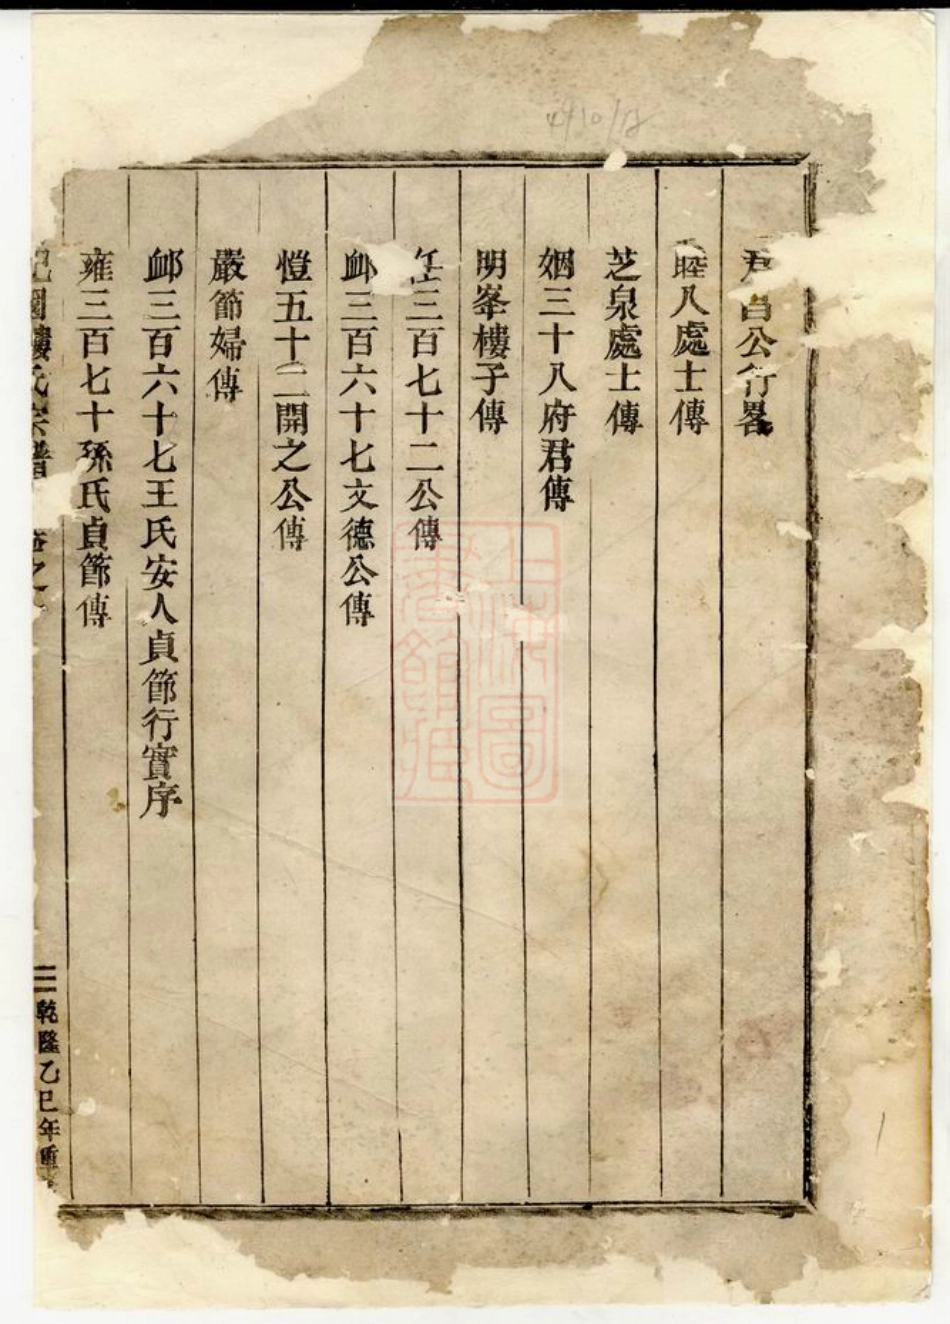 昌公行畧
睦八處士傳
芝泉處士傳
姻三十八府君傳
明峯樓子傳
任三百七十二公傳
衈三百六十七文德公傳
愷五十二開之公傳
嚴節婦傳
衈三百六十七王氏安人貞節行實序
雍三百七十孫氏貞節傳
國樓氏宗譜 卷之
三 乾隆乙巳年重
上海圖書館藏